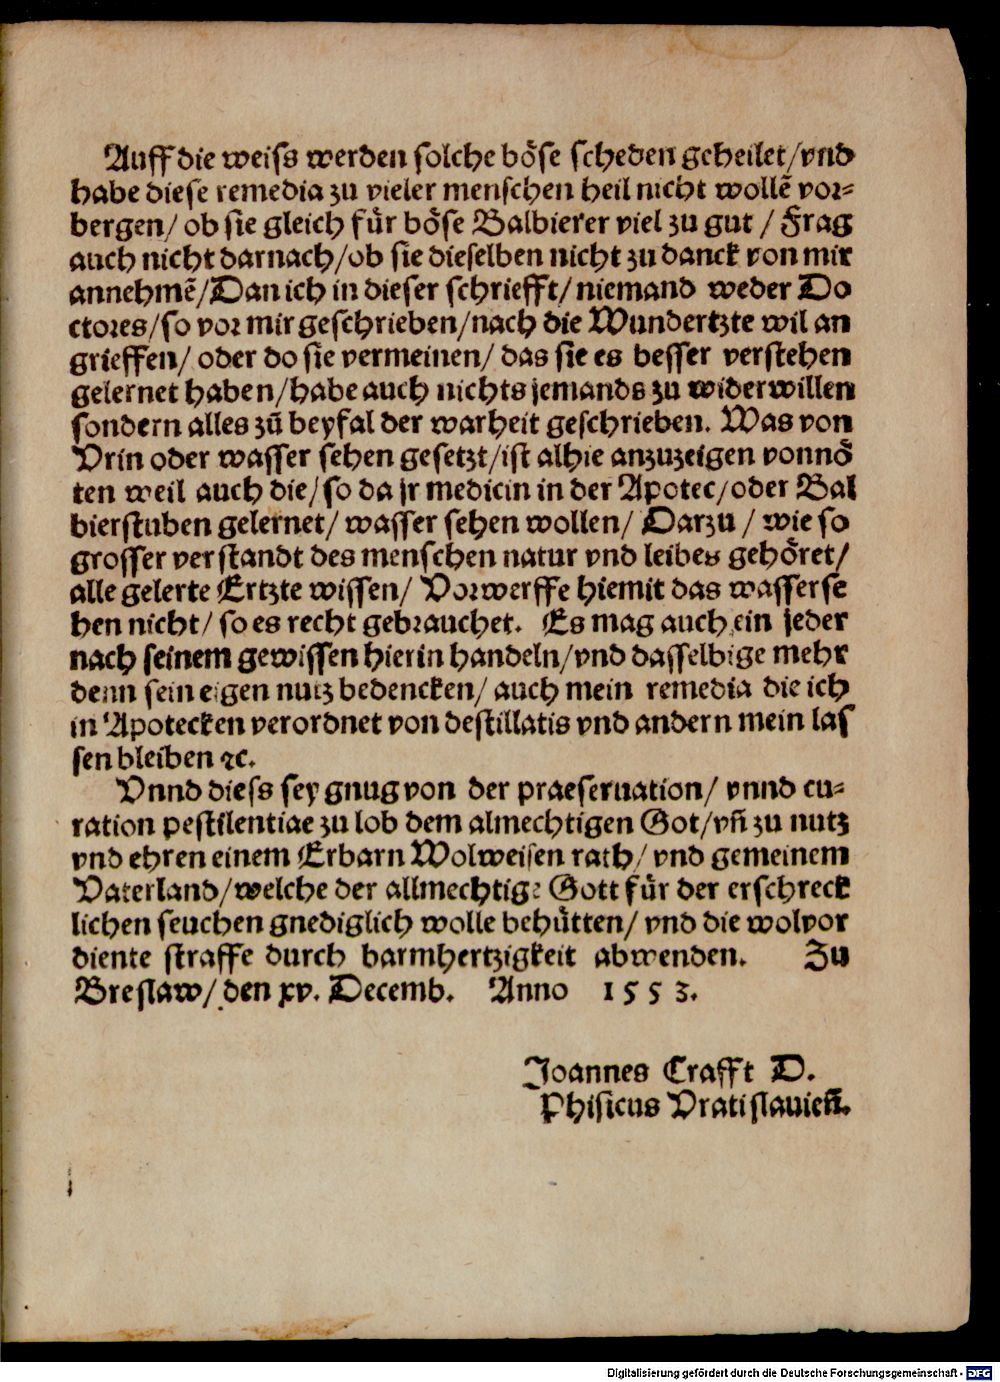 Auff die weiss werden solche böse scheden geheilet/vnd
habe diese remedia zu vieler menschen heil nicht wollē vor-
bergen/ ob sie gleich für böse Balbierer viel zu gut / Frag
auch nicht darnach/ob sie dieselben nicht zu danck von mir
annehmē/Dan ich in dieser schriefft/ niemand weder Do
ctores/so vor mir geschrieben/nach die Wundertzte wil an
grieffen/ oder do sie vermeinen/ das sie es besser verstehen
gelernet haben/habe auch nichts jemands zu widerwillen
sondern alles zū beyfal der warheit geschrieben. Was von
Vrin oder wasser sehen gesetzt/ist alhie anzuzeigen vonnö
ten weil auch die/so da jr medicin in der Apotec/oder Bal
bierstuben gelernet/ wasser sehen wollen/ Darzu / wie so
grosser verstandt des menschen natur vnd leibes gehöret/
alle gelerte Ertzte wissen/ Vorwerffe hiemit das wasserse
hen nicht/ so es recht gebrauchet. Es mag auch ein jeder
nach seinem gewissen hierin handeln/vnd dasselbige mehr
denn sein eigen nutz bedencken/ auch mein remedia die ich
in Apotecken verordnet von destillatis vnd andern mein las
sen bleiben ꝛc.
Vnnd diess sey gnug von der praeseruation/ vnnd cu-
ration pestilentiae zu lob dem almechtigen Got/vñ zu nutz
vnd ehren einem Erbarn Wolweisen rath/ vnd gemeinem
Vaterland/welche der allmechtige Gott für der erschreck
lichen seuchen gnediglich wolle behütten/ vnd die wolvor
diente straffe durch barmhertzigkeit abwenden. Zu
Breslaw/ den xv. Decemb. Anno 1553.
Joannes Crafft D.
Phisicus Vratislavieñ.
Digitalisierung gefördert durch die Deutsche Forschungsgemeinschaft - DFG